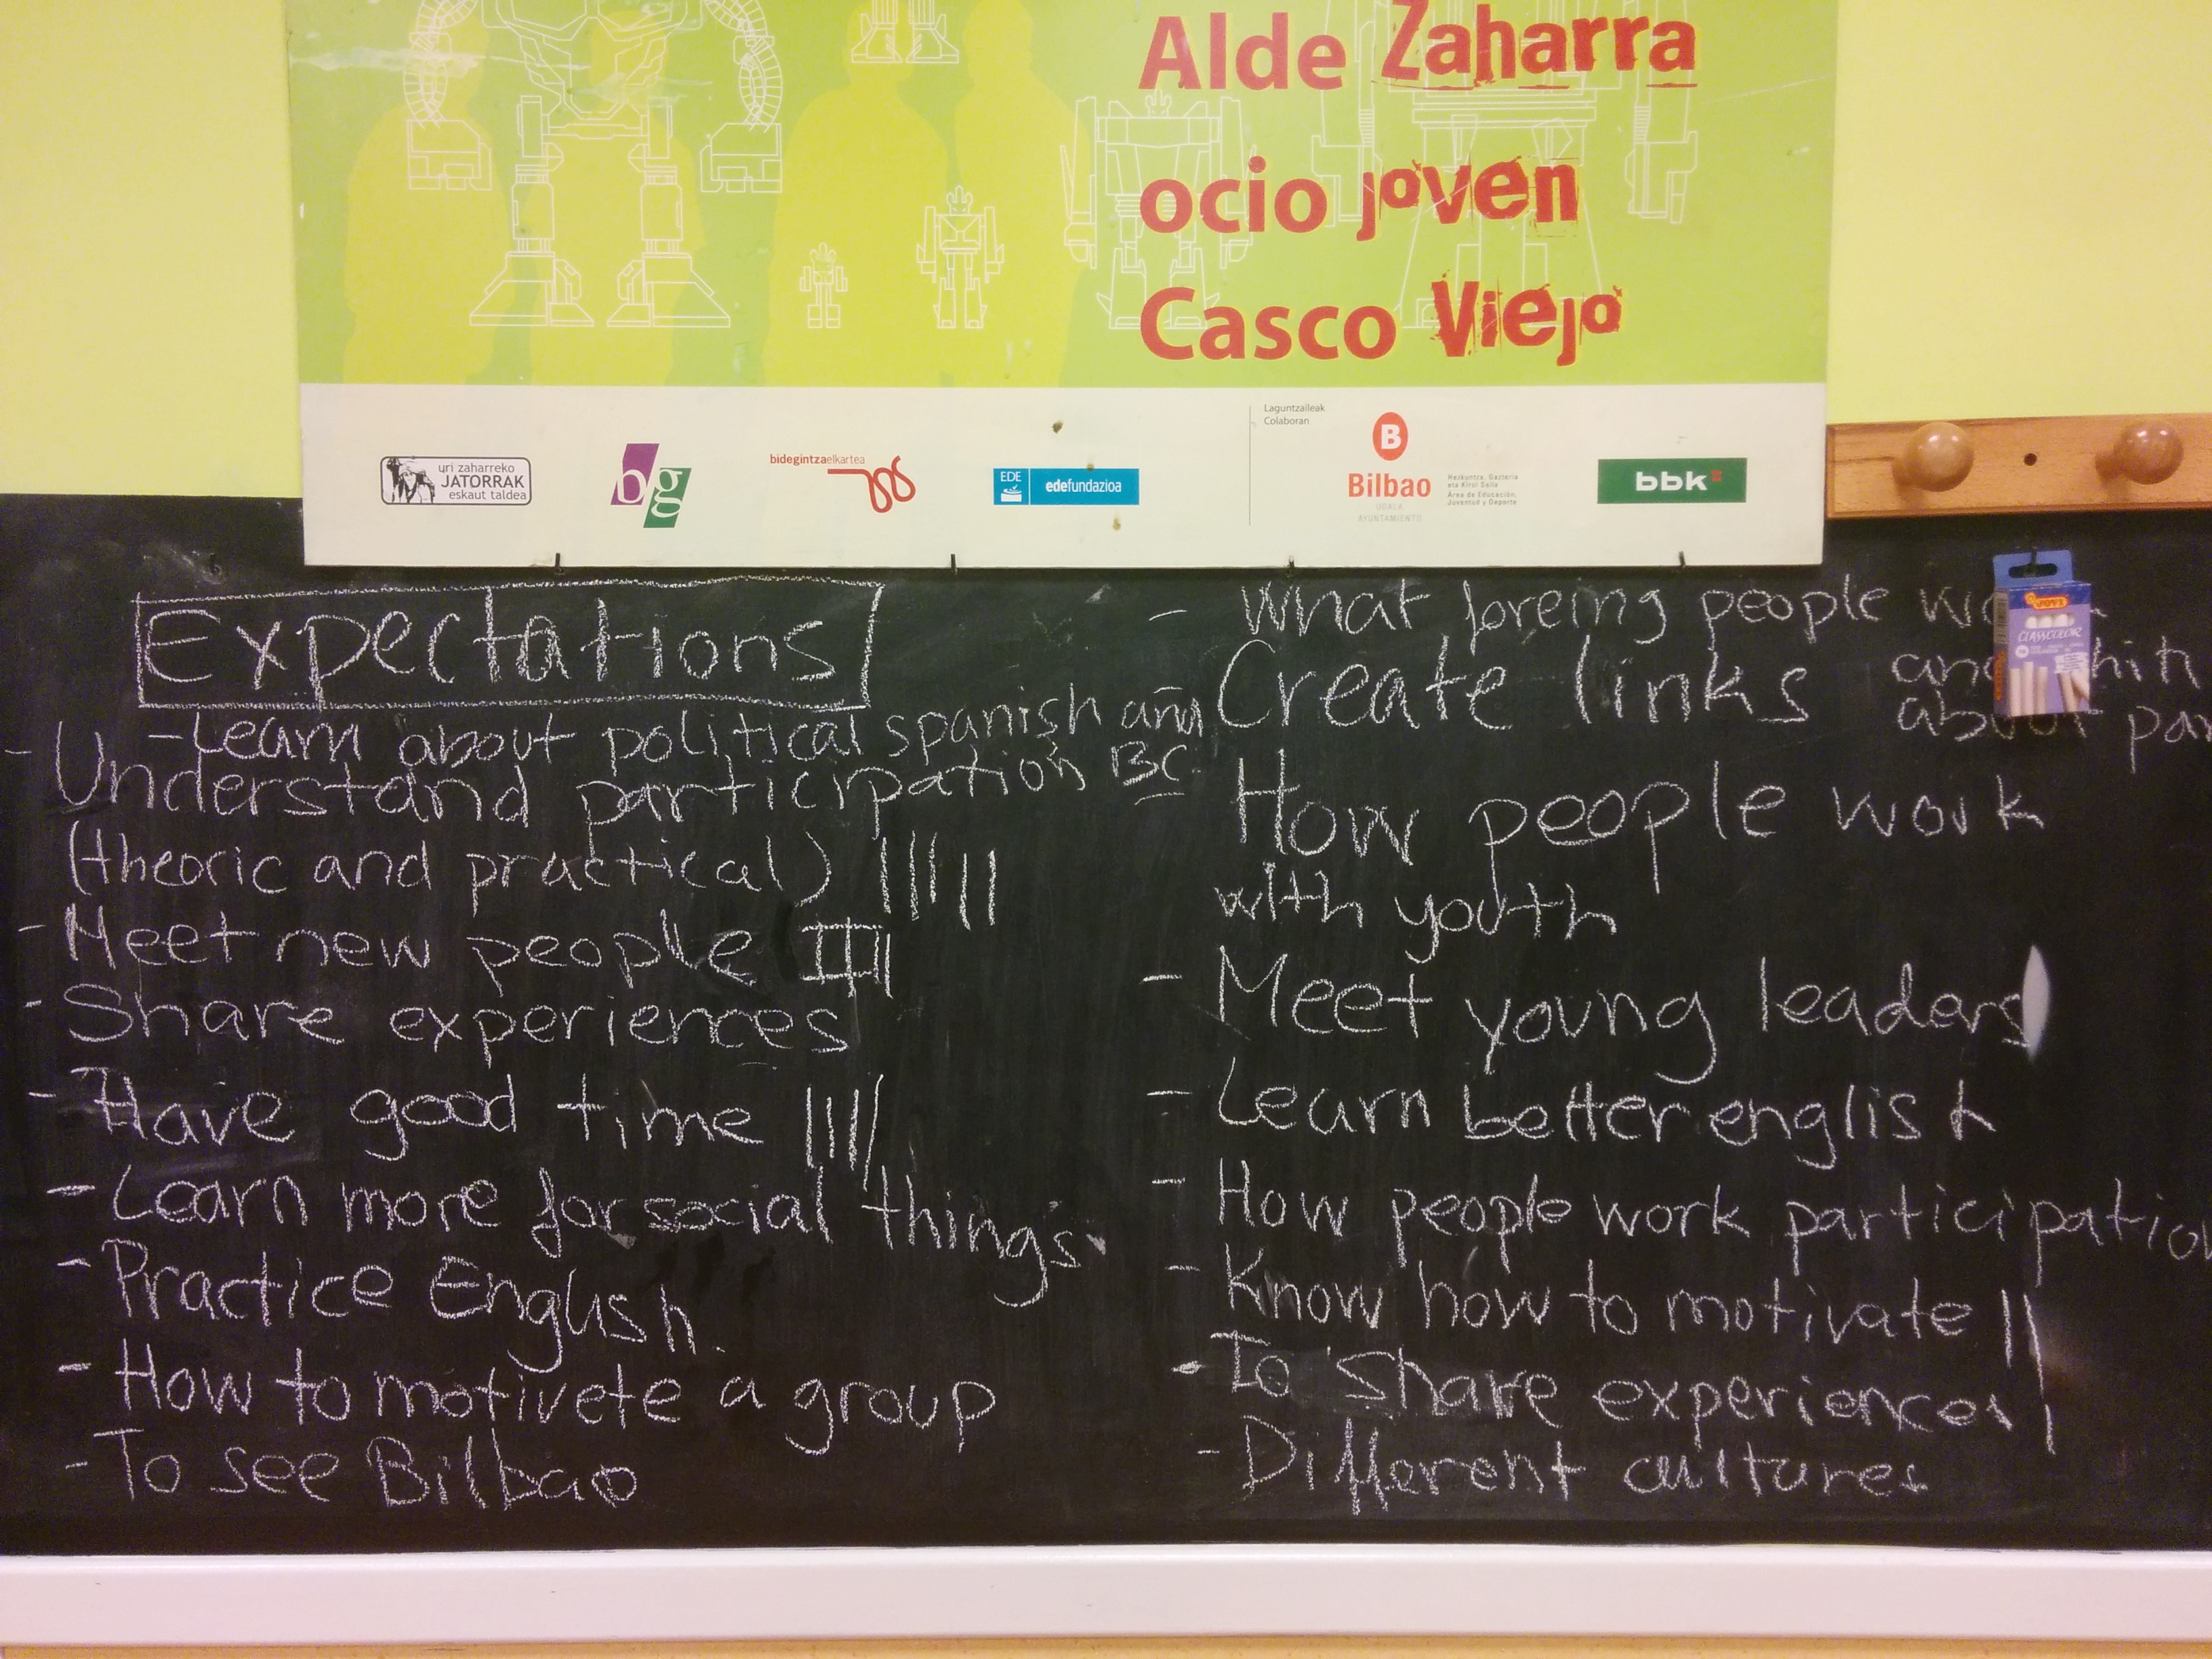 Alde Zaharra
ocio joven
Casco Viejo
uri zaharreko
JATORRAK
eskaut taldea
bg
bidegintzaelkartea
EDE
edefundazioa
Laguntzaileak
Colaboran
B
Bilbao
UDALA
AYUNTAMIENTO
Hezkuntza, Gazteria
eta Kirol Saila
Área de Educación,
Juventud y Deporte
bbk
JOVI
CLASSCOLOR
Expectations
- Learn about political spanish and
BC
- U
Understand participation
(theoric and practical) ||||||
- Meet new people
- Share experiences
- Have good time |||||
- Learn more for social things
- Practice English.
- How to motivete a group
- To see Bilbao
- What foreing people
and
about
Create links
How people work
with youth
- Meet young leaders
- Learn better english
- How people work participation
- Know how to motivate ||
- To Share experiences |
- Different cultures